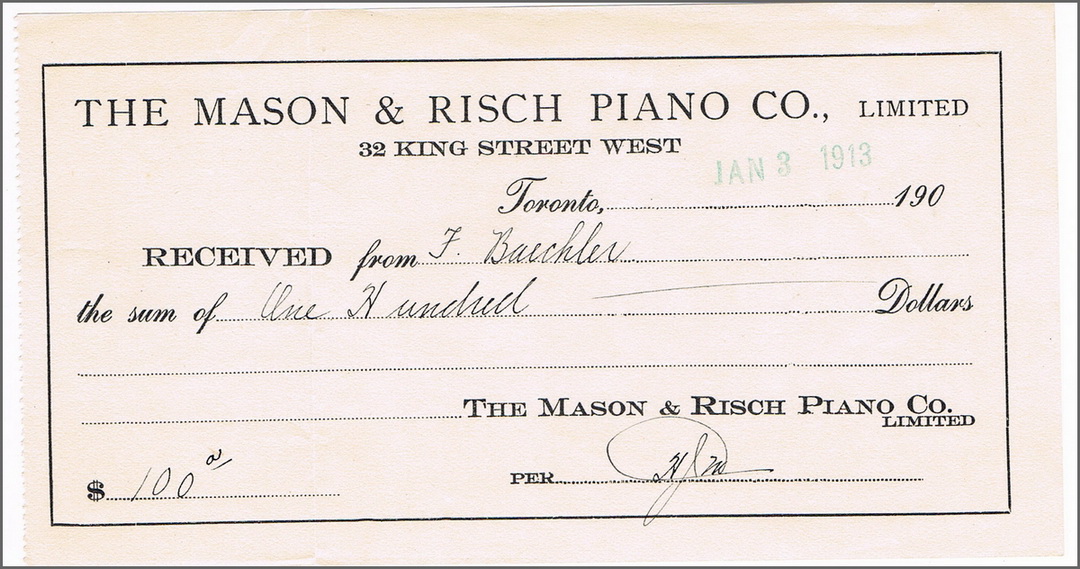 THE MASON & RISCH PIANO CO., LIMITED
32 KING STREET WEST
JAN 3 1913
Toronto, 190
RECEIVED from F. Baechler
the sum of One Hundred Dollars
THE MASON & RISCH PIANO CO.
LIMITED
$ 100 PER